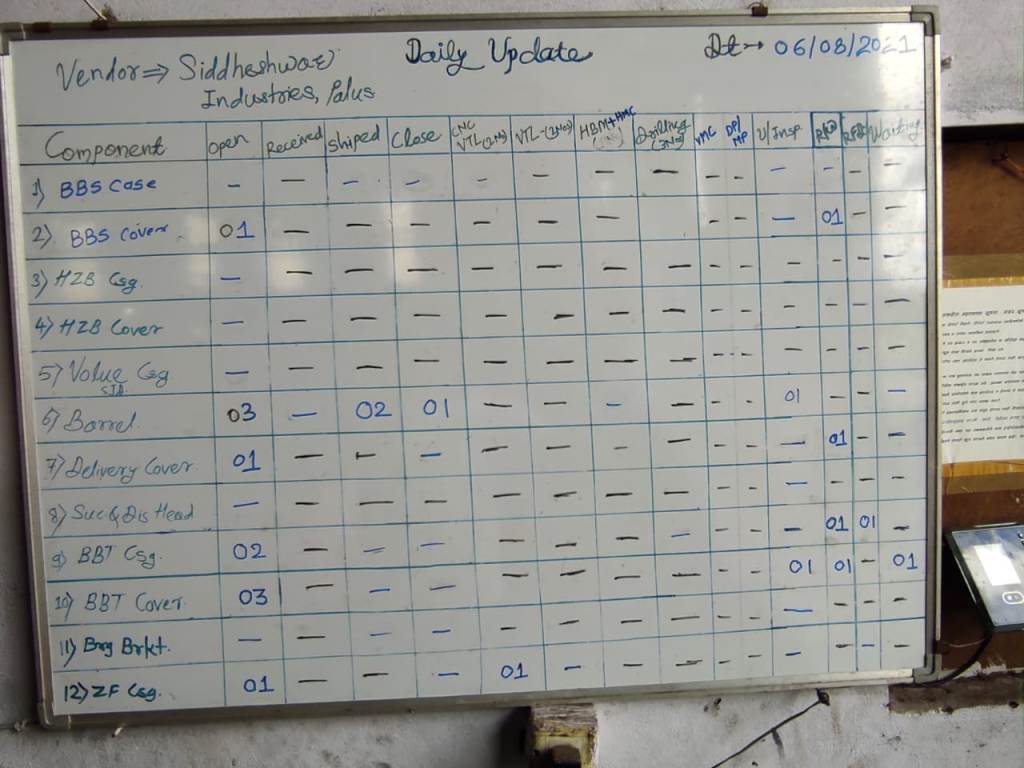 Daily Update
Dt→ 06/08/2021
Vendor⇒ Siddheshwar
Industries, Palus
Component Open Received Shiped Close CNC VTL VTL HBM+HMC Drilling VMC DP/MP V/Insp. Waiting
1) BBS Case - - - - - - - - - - - - - -
2) BBS Cover 01 - - - - - - - - - 01 - -
3) HZB Csg. - - - - - - - - - - - - - -
4) HZB Cover - - - - - - - - - - - - - -
5) Value Csg - - - - - - - - - - - - - -
6) Barrel 03 - 02 01 - - - - - - 01 - - -
7) Delivery Cover 01 - - - - - - - - - - 01 - -
8) Suc & Dis Head - - - - - - - - - - -
9) BBT Csg. 02 - - - - - - - - - - 01 01 -
10) BBT Cover 03 - - - - - - - - - 01 01 - 01
11) Brg Brkt. - - - - - - - - - - - - - -
12) ZF Csg. 01 - - - 01 - - - - - - - - -